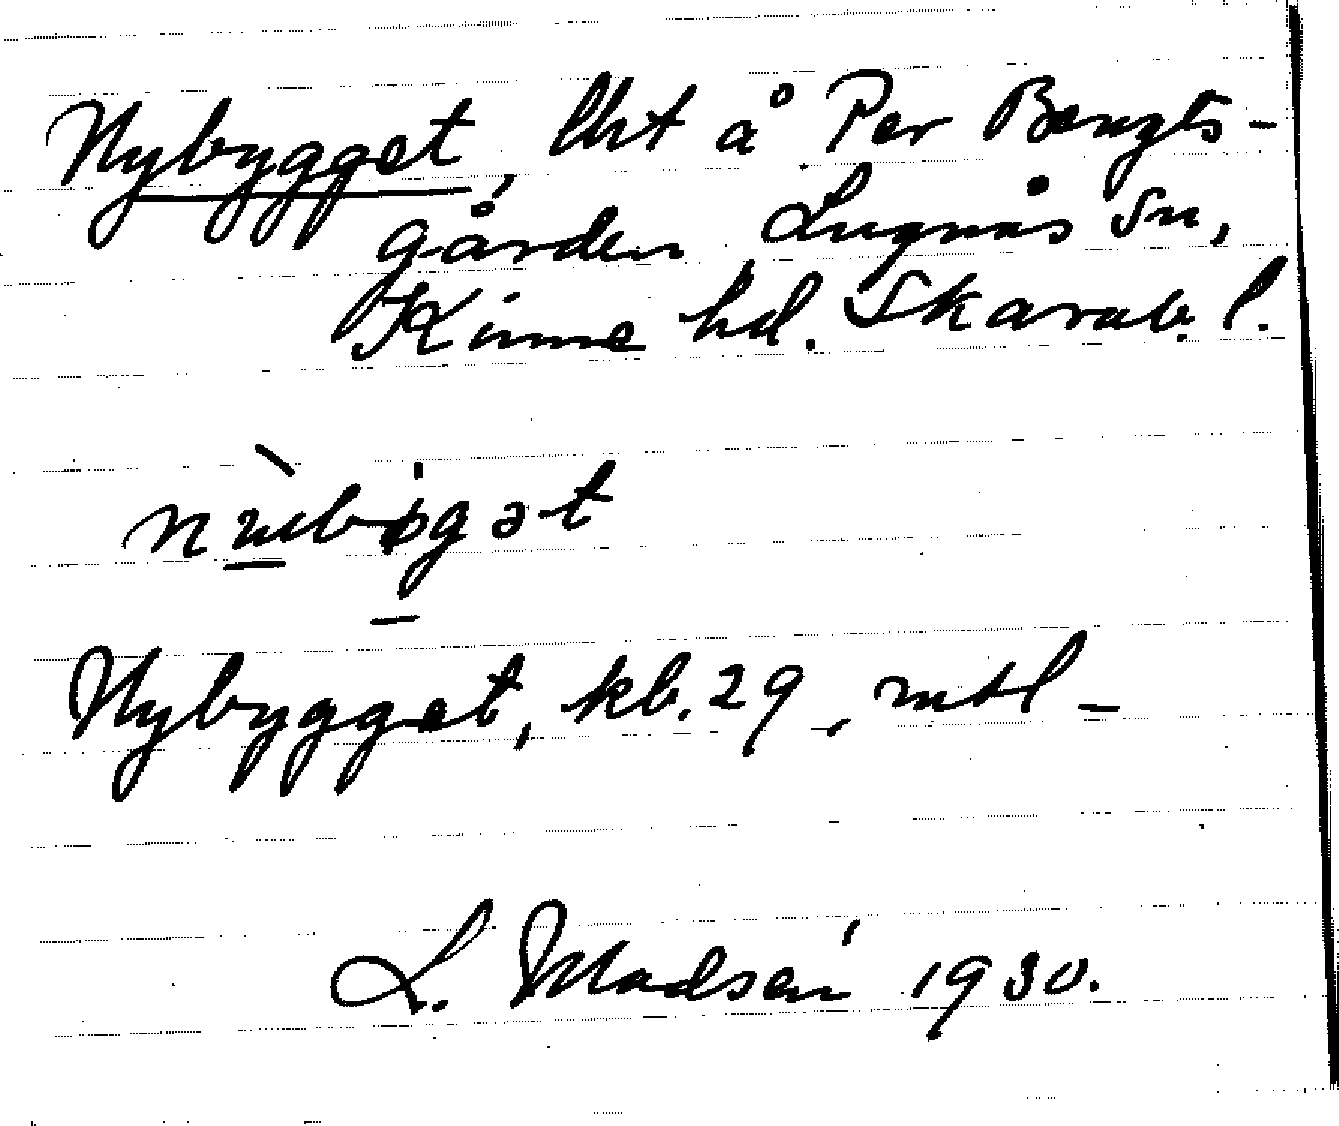 Nybygget, lht å Per Bengts-
gården Lugnås sn,
Kinne hd. Skarab. l.
Nybygget, kb. 29, mtl -
L. Madsén 1930.